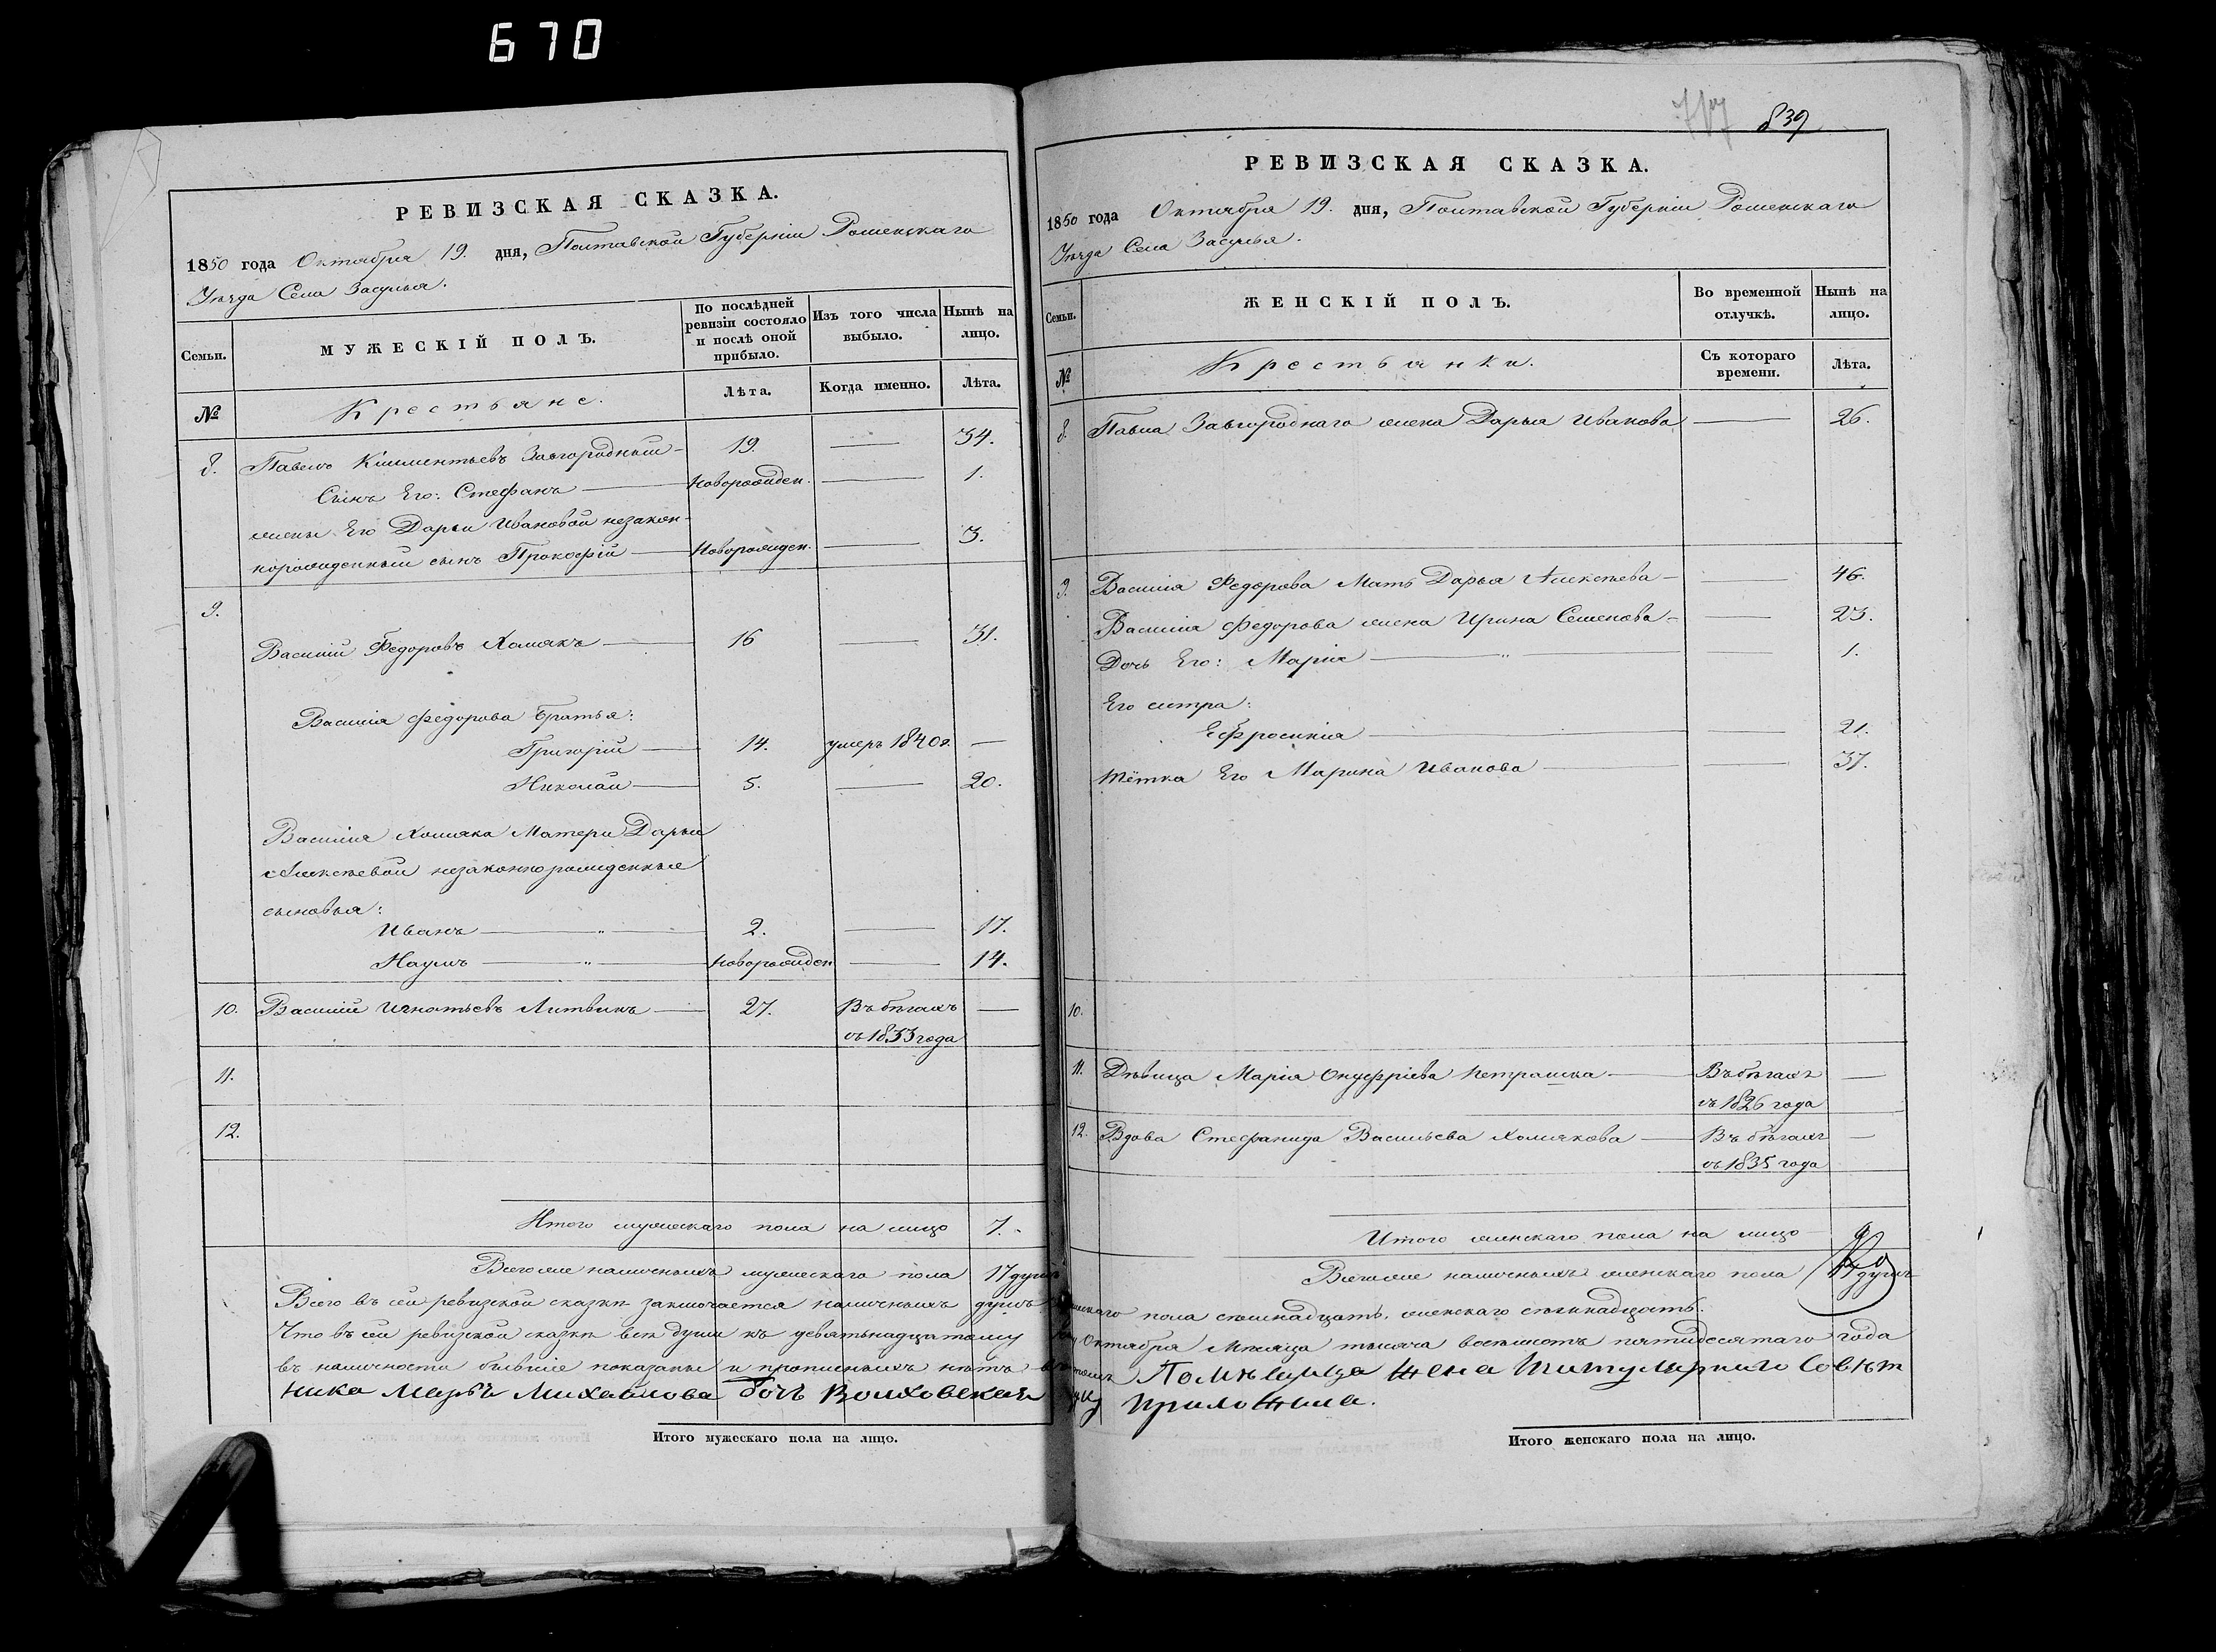 670
РЕВИЗСКАЯ СКАЗКА.
1850 года Октября 19. дня, Полтавской Губерніи Роменскаго
Уѣзда Села Засулья.
Семьи.
МУЖЕСКІЙ ПОЛЪ.
По послѣдней ревизіи состояло и послѣ оной прибыло.
Изъ того числа выбыло.
Нынѣ на лицо.
№
Крестьяне.
Лѣта.
Когда именно.
Лѣта.
8. Павелъ Климентьевъ Завгородный 19. — 34.
Сынъ Его: Стефанъ — Новорожден. — 1.
жены Его Дарьи Ивановой незакон-
норожденный сынъ Прокофій — Новорожден. — 3.
9.
Василій Федоровъ Хомякъ — 16 — 31.
Василія Федорова братья:
Григорій — 14. умеръ 1840г. —
Николай — 5. — 20.
Василія Хомяка Матери Дарьи
Алексѣевой незаконнорожденные
сыновья:
Иванъ — „ — 2. — 17.
Наумъ — „ — Новорожден — 14.
10. Василій Игнатьевъ Литвинъ — 27. Въ бѣгахъ —
съ 1833 года
11.
12.
Итого мужескаго пола на лицо 7.
Всего же наличныхъ мужескаго пола 17 душъ
Всего въ сей ревизской сказкѣ заключается наличныхъ душъ
Что въ сей ревизской сказкѣ всѣ души къ девятьнадцатому
въ наличности бывшіе показаны и прописныхъ нѣтъ
ника Марья Михайлова дочь Волховская
Итого мужескаго пола на лицо.
839
РЕВИЗСКАЯ СКАЗКА.
1850 года Октября 19. дня, Полтавской Губерніи Роменскаго
Уѣзда Села Засулья.
Семьи.
ЖЕНСКІЙ ПОЛЪ.
Во временной отлучкѣ.
Нынѣ на лицо.
№
Крестьянки.
Съ котораго времени.
Лѣта.
8. Павла Завгороднаго жена Дарья Иванова — 26.
9. Василія Федорова Мать Дарья Алексѣева — 46.
Василія Федорова жена Ирина Семенова — 23.
Дочь Его: Марія — „ — 1.
Его систра:
Ефросинія — 21.
тётка Его Марина Иванова — 37.
10.
11. Дѣвица Марія Онуфріева Петрашка — Въ бѣгахъ —
съ 1826 года
12. Вдова Стефанида Васильева Хомякова — Въ бѣгахъ —
съ 1835 года
Итого женскаго пола на лицо 9
Всего же наличныхъ женскаго пола 17 душъ
пола семнадцать, женскаго семьнадцать.
Октября Мѣсяца тысяча восемсотъ пятидесятаго года
Помѣщица жена Титулярнаго Совѣт
приложила.
Итого женскаго пола на лицо.